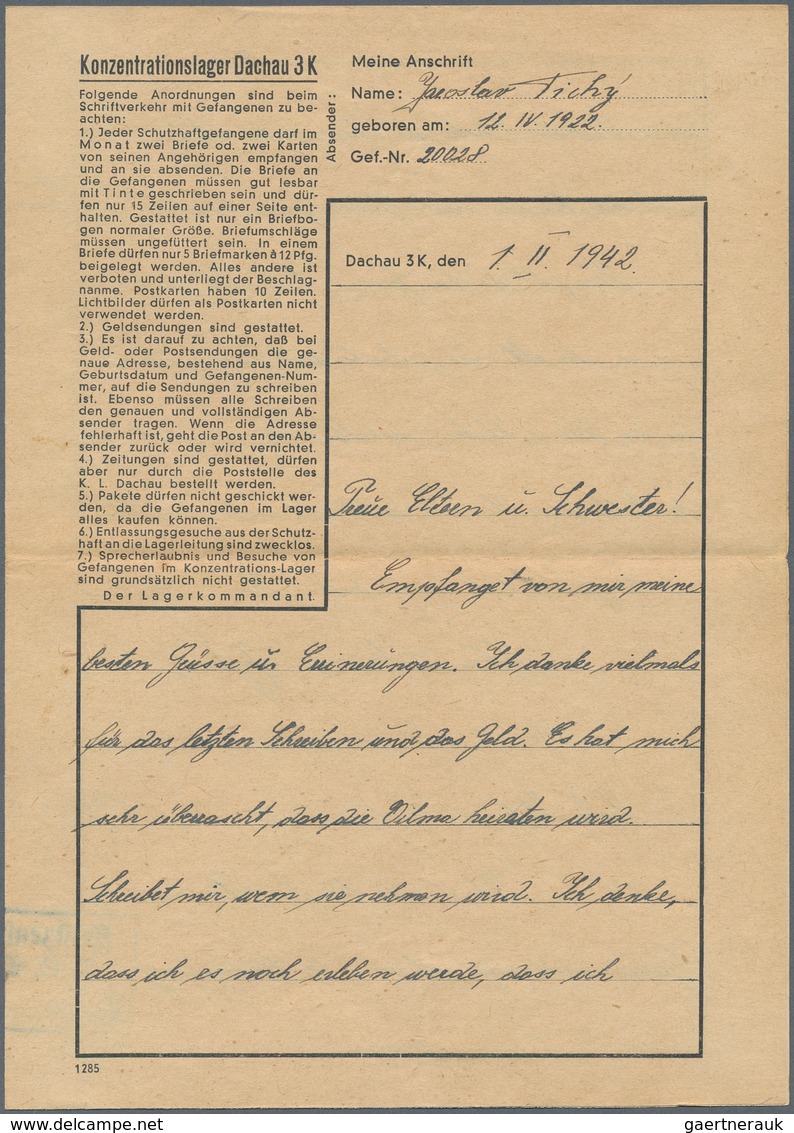 Konzentrationslager Dachau 3 K
Folgende Anordnungen sind beim
Schriftverkehr mit Gefangenen zu be-
achten:
1.) Jeder Schutzhaftgefangene darf im
Monat zwei Briefe od. zwei Karten
von seinen Angehörigen empfangen
und an sie absenden. Die Briefe an
die Gefangenen müssen gut lesbar
mit Tinte geschrieben sein und dür-
fen nur 15 Zeilen auf einer Seite ent-
halten. Gestattet ist nur ein Briefbo-
gen normaler Größe. Briefumschläge
müssen ungefüttert sein. In einem
Briefe dürfen nur 5 Briefmarken à 12 Pfg.
beigelegt werden. Alles andere ist
verboten und unterliegt der Beschlag-
nanme. Postkarten haben 10 Zeilen.
Lichtbilder dürfen als Postkarten nicht
verwendet werden.
2.) Geldsendungen sind gestattet.
3.) Es ist darauf zu achten, daß bei
Geld- oder Postsendungen die ge-
naue Adresse, bestehend aus Name,
Geburtsdatum und Gefangenen-Num-
mer, auf die Sendungen zu schreiben
ist. Ebenso müssen alle Schreiben
den genauen und vollständigen Ab-
sender tragen. Wenn die Adresse
fehlerhaft ist, geht die Post an den Ab-
sender zurück oder wird vernichtet.
4.) Zeitungen sind gestattet, dürfen
aber nur durch die Poststelle des
K. L. Dachau bestellt werden.
5.) Pakete dürfen nicht geschickt wer-
den, da die Gefangenen im Lager
alles kaufen können.
6.) Entlassungsgesuche aus der Schutz-
haft an die Lagerleitung sind zwecklos.
7.) Sprecherlaubnis und Besuche von
Gefangenen im Konzentrations-Lager
sind grundsätzlich nicht gestattet.
Der Lagerkommandant.
Absender:
Meine Anschrift
Name: Jaroslav Tichý
geboren am: 12. IV. 1922.
Gef.-Nr. 20028
Dachau 3 K, den 1. II. 1942.
Treue Eltern u. Schwester!
Empfanget von mir meine
besten Grüsse u. Errinerungen. Ich danke vielmals
für das letzten Schreiben und das Geld. Es hat mich
sehr überrascht, dass die Vilma heiraten wird.
Schreibet mir, wem sie nehmen wird. Ich denke,
dass ich es noch erleben werde, dass ich
1285
gaertnerauk